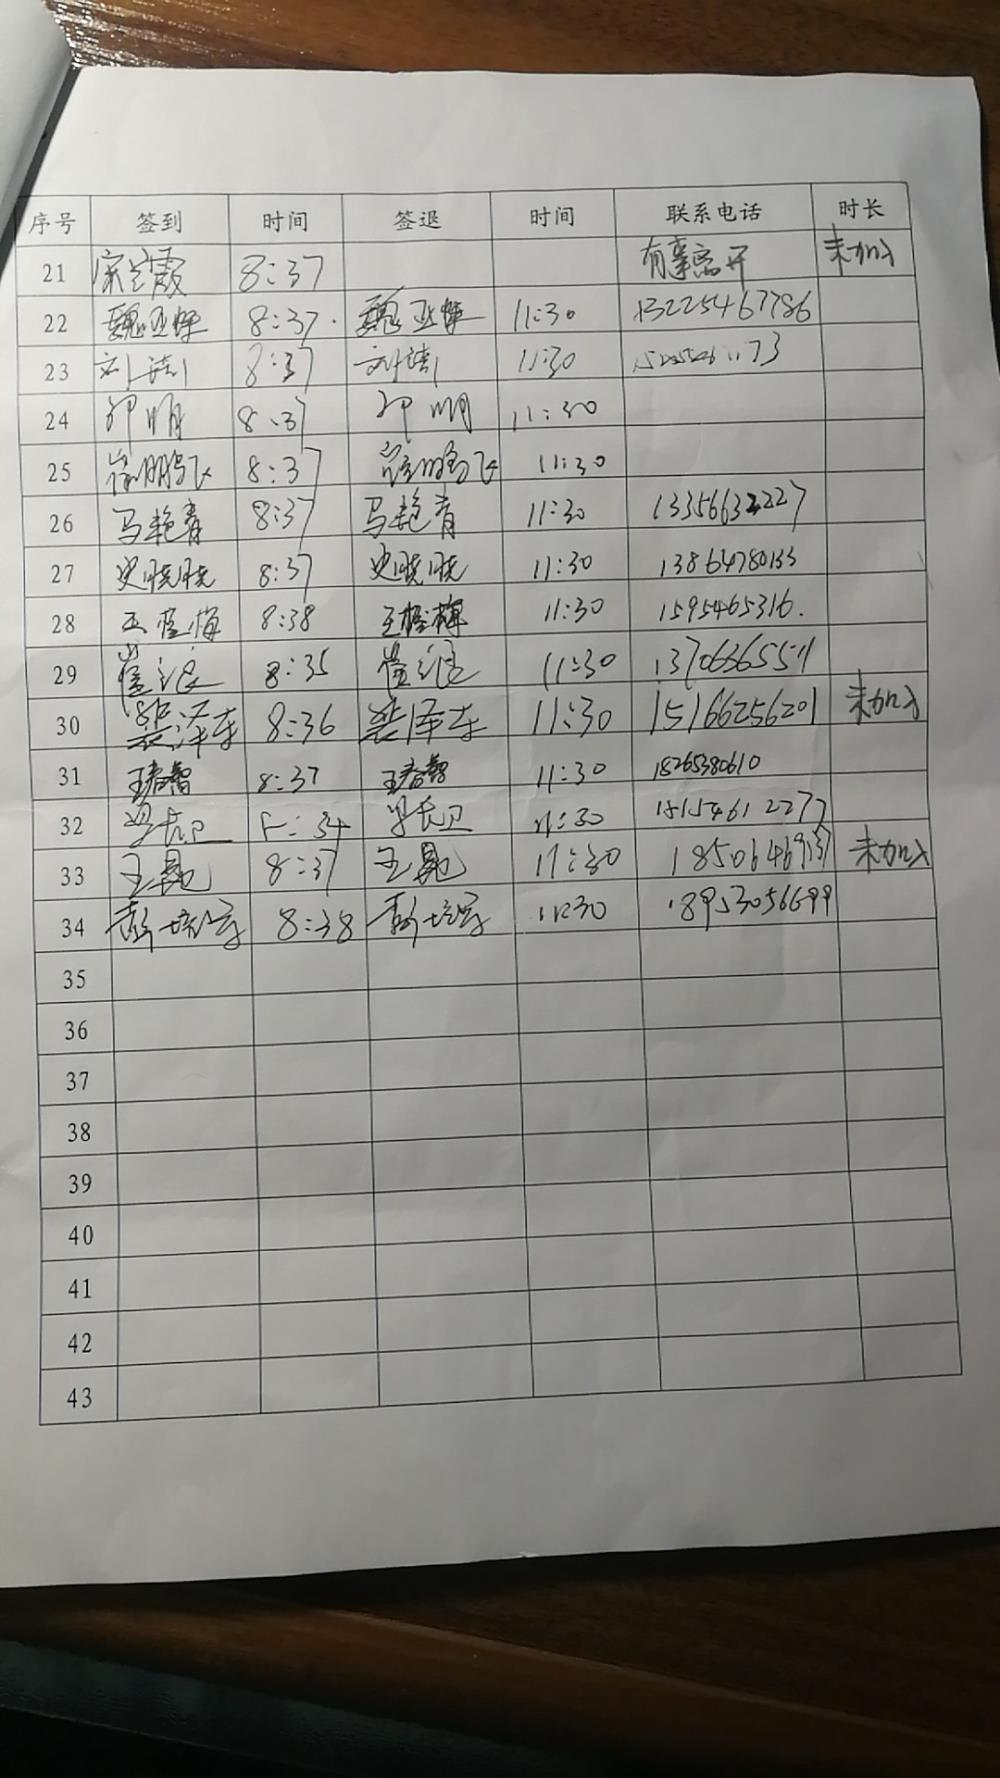 序号 签到 时间 签退 时间 联系电话 时长
21 8:37 有事离开 未加入
22 魏亚 8:37 魏亚 11:30 13225467786
23 刘 8:37 刘 11:30
24 明 8:37 明 11:30
25 鹏飞 8:37 鹏飞 11:30
26 马艳青 8:37 马艳青 11:30 13356632227
27 史晓晓 8:37 史晓晓 11:30 13864780133
28 王桂梅 8:38 王桂梅 11:30 1595465316.
29 崔 8:35 崔 11:30 13706365511
30 裴泽东 8:36 裴泽东 11:30 15166256201 未加入
31 王春智 8:37 王春智 11:30 18265380610
32 长卫 8:34 长卫 11:30 15154612277
33 王勇 8:37 王勇 11:30 未加入
34 彭培军 8:38 彭培军 11:30 18953056699
35
36
37
38
39
40
41
42
43